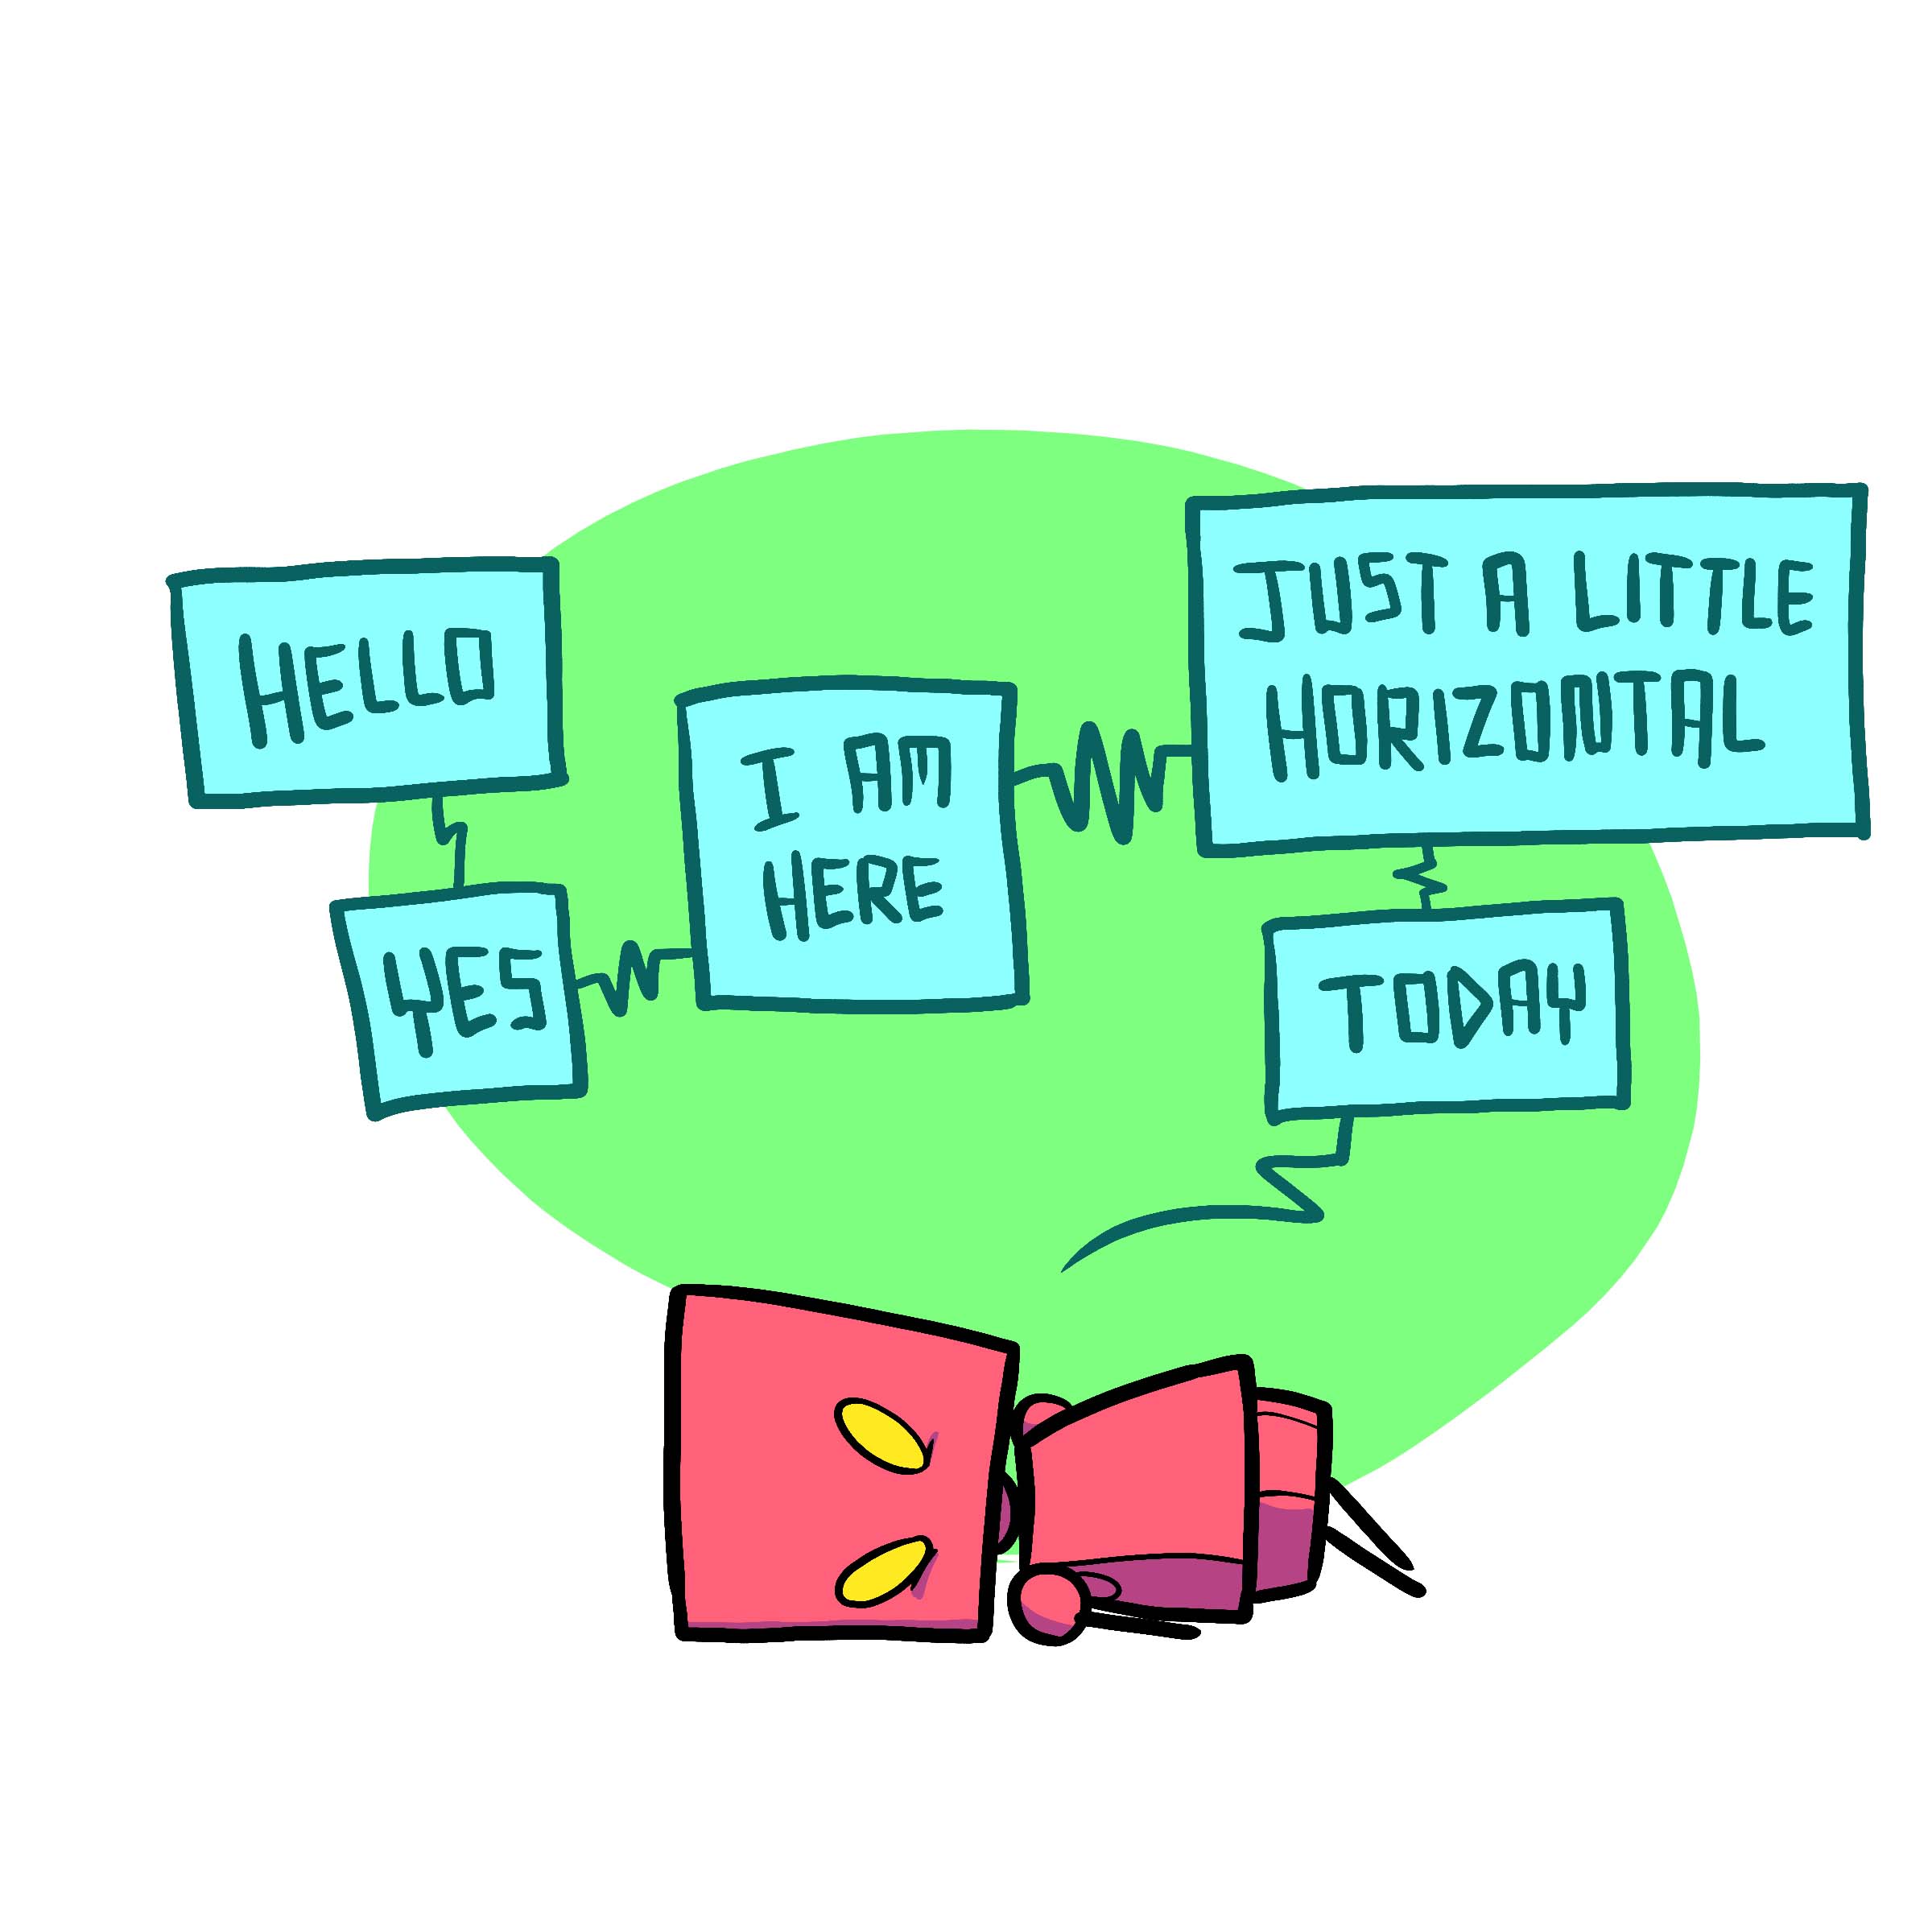 HELLO
YES
I AM
HERE
JUST A LITTLE
HORIZONTAL
TODAY